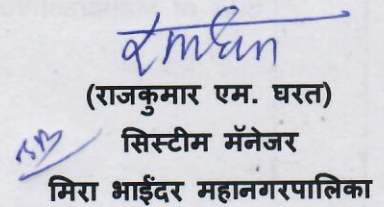 (राजकुमार एम. घरत)
सिस्टीम मॅनेजर
मिरा भाईंदर महानगरपालिका